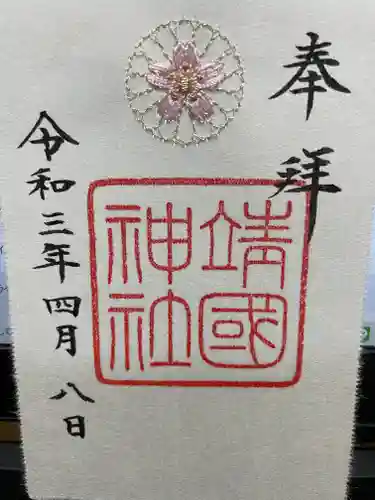 奉拝
靖國
神社
令和三年四月八日